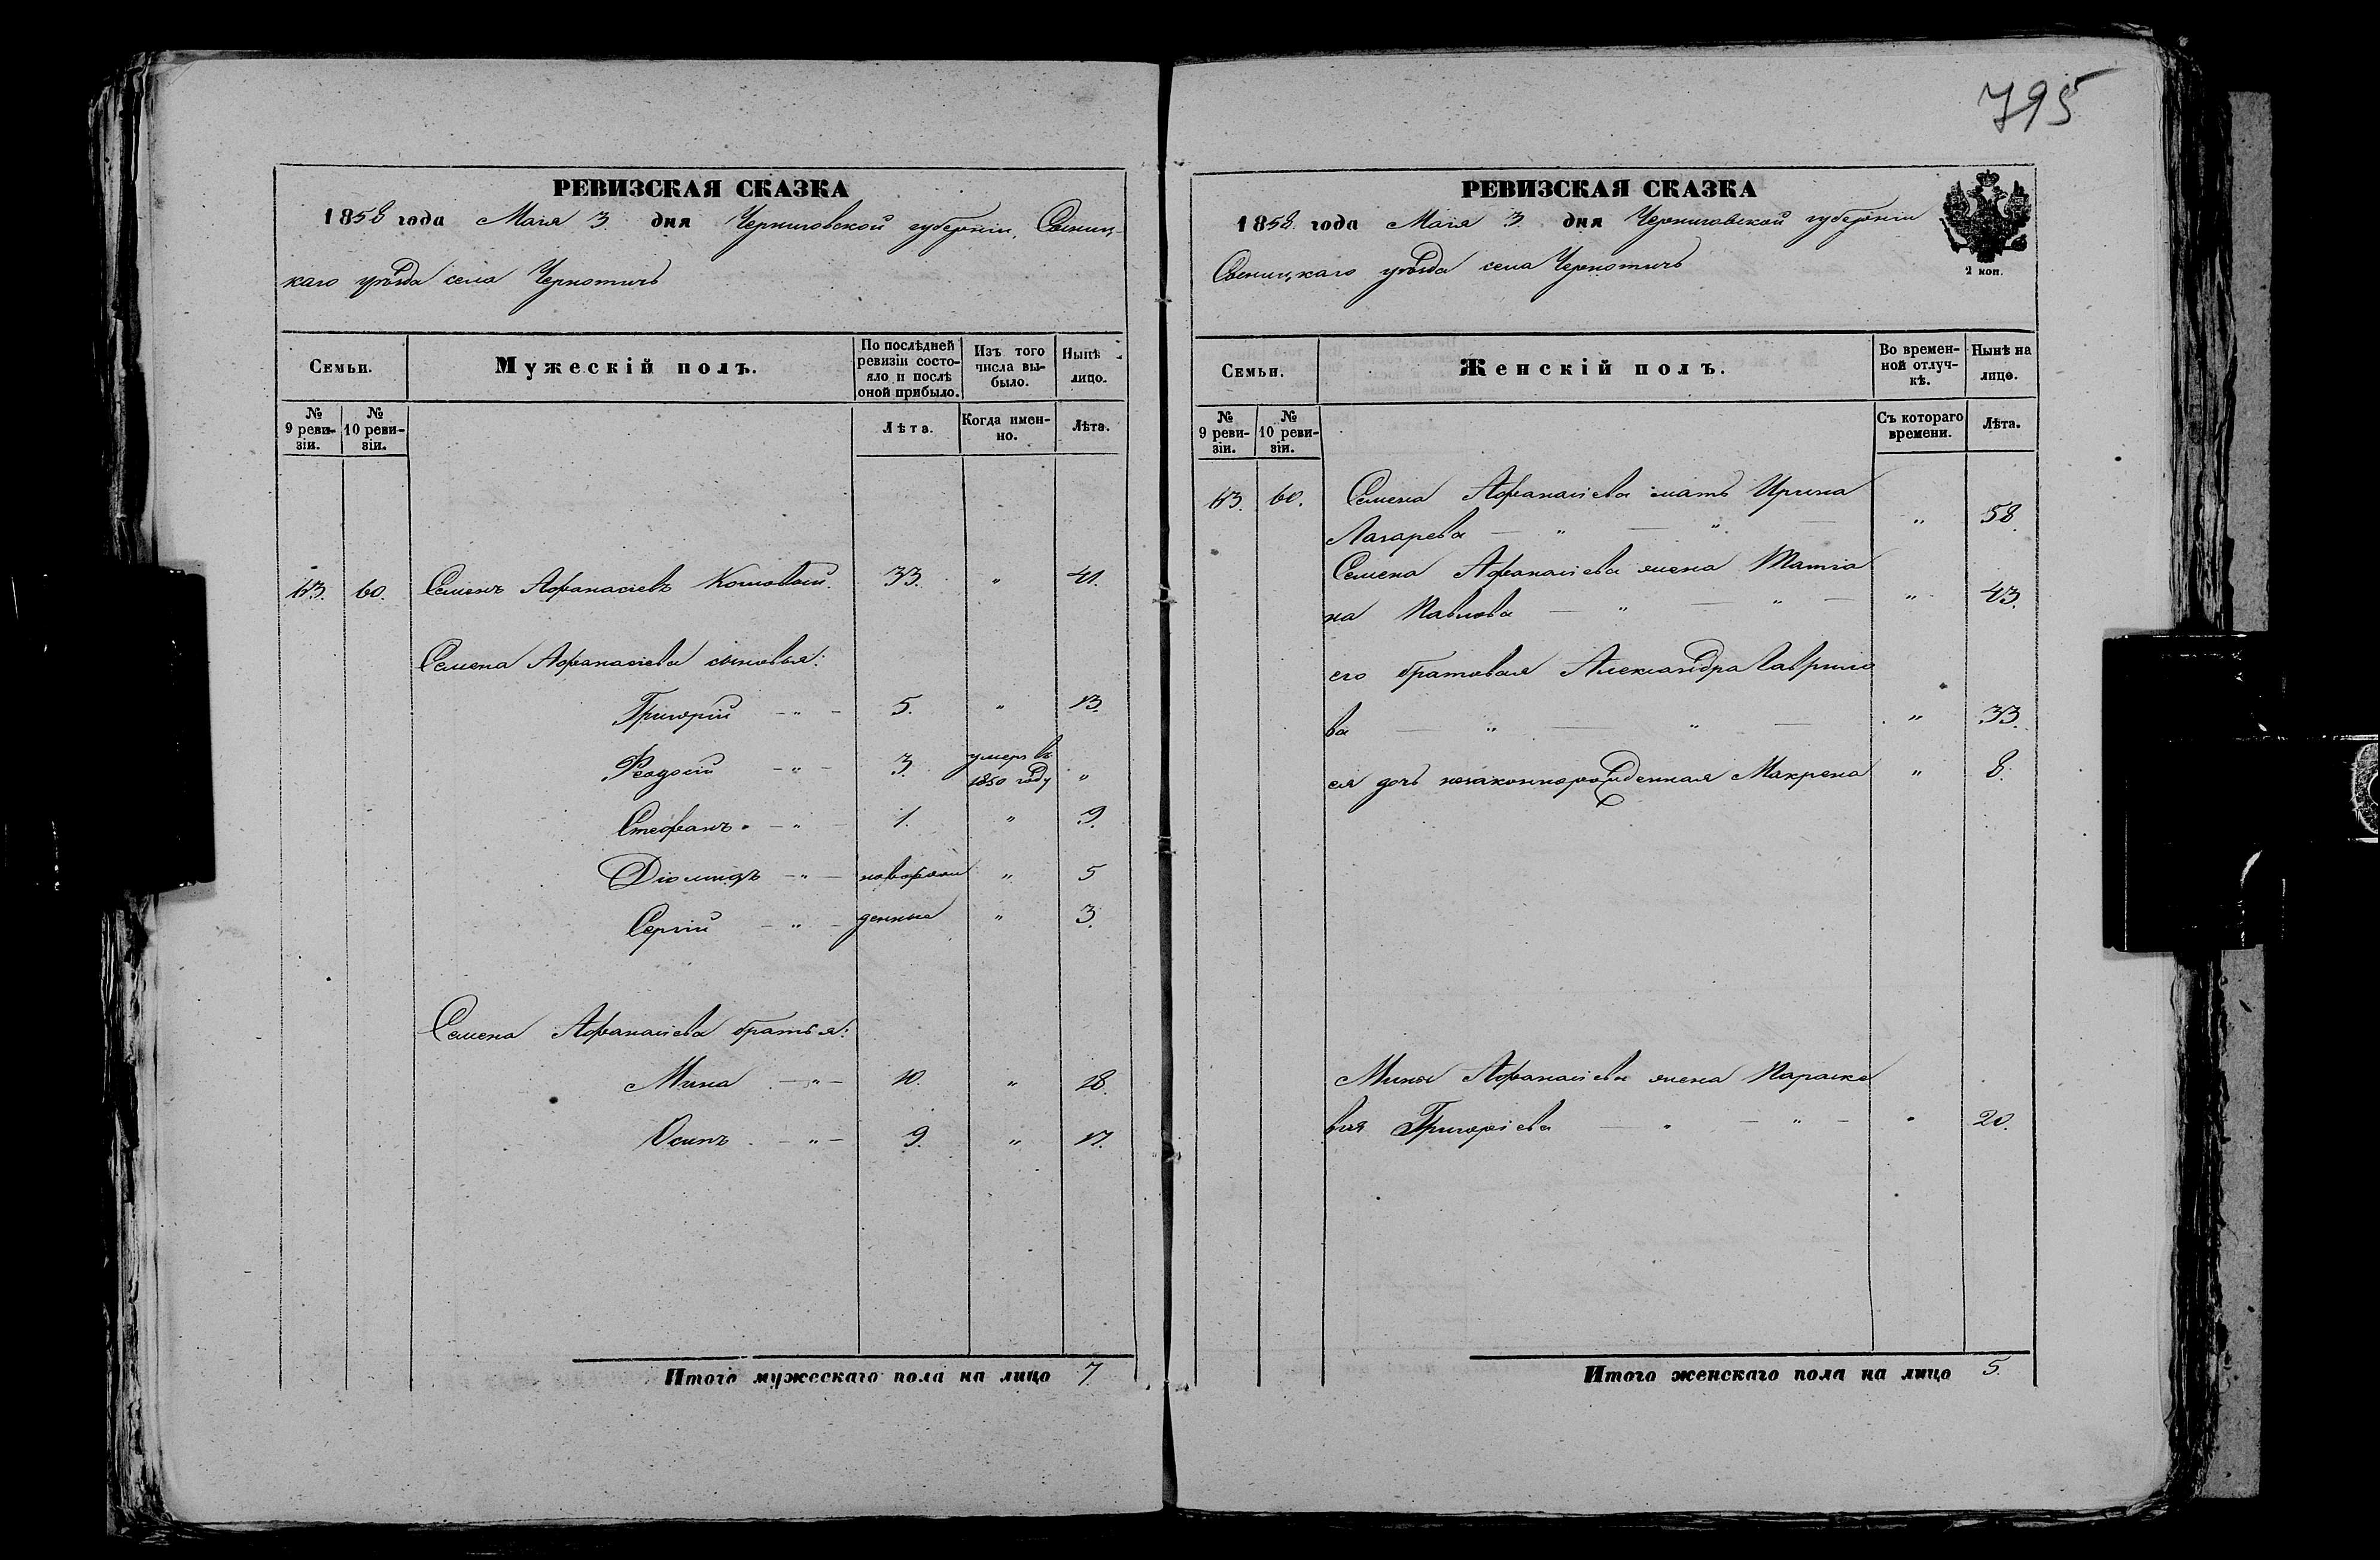 795
РЕВИЗСКАЯ СКАЗКА
1858 года Маія 3 дня Черниговской губерніи, Сосниц-
каго уѣзда села Чернотичь
Семьи.
Мужескій полъ.
По послѣдней ревизіи состояло и послѣ оной прибыло.
Изъ того числа выбыло.
Нынѣ лицо.
№ 9 ревизіи.
№ 10 ревизіи.
Лѣта.
Когда именно.
Лѣта.
60. Семенъ Афанасіевъ 33. " 41.
Семена Афанасіева сыновья:
Григорій — " — 5. " 13.
Феодосій — " — 3. умеръ въ
1850 году "
Стефанъ — " — 1. " 9.
Діомидъ — " — новорож " 5
Сергій — " — денные " 3.
Семена Афанасіева братья:
Мина — " — 10. " 18.
Осипъ — " — 9. " 17.
Итого мужескаго пола на лицо 7.
РЕВИЗСКАЯ СКАЗКА
1858 года Маія 3 дня Черниговской губерніи
Сосницкаго уѣзда села Чернотичь
2 коп.
Семьи.
Женскій полъ.
Во временной отлучкѣ.
Нынѣ на лицо.
№ 9 ревизіи.
№ 10 ревизіи.
Съ котораго времени.
Лѣта.
60. Семена Афанасіева мать Ирина
Лазарева — " — " — " 58.
Семена Афанасіева жена Татіа
на Павлова — " — " — " 43.
его братовая Александра Гаврило
ва — " — " — " 33.
ея дочь незаконнорожденная Макрена " 8.
Мины Афанасіева жена Параске
вія Григоріева — " — " — " 20.
Итого женскаго пола на лицо 5.